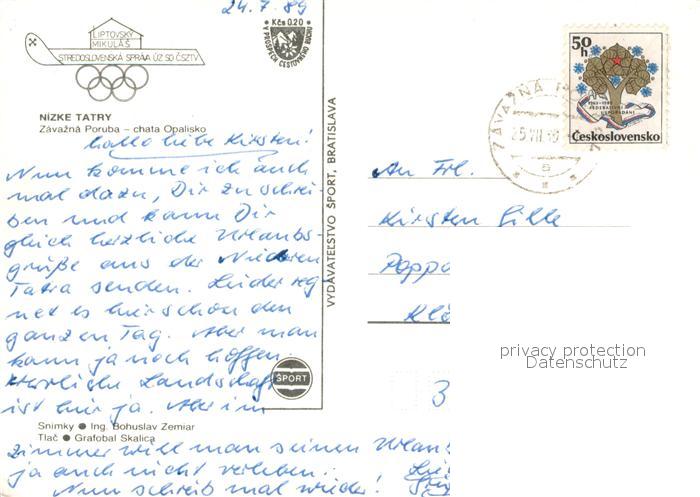 24.7.89
Kčs 0.20
V PROSPECH CESTOVNÉHO RUCHU
LIPTOVSKÝ
MIKULÁŠ
STREDOSLOVENSKÁ SPRÁVA ÚZ SO ČSZTV
NÍZKE TATRY
Závažná Poruba – chata Opalisko
hallo liebe Kirsten!
Nun komme ich auch
mal dazu, Dir zu schrei-
ben und kann Dir
gleich herzliche Urlaubs-
grüße aus der Niederen
Tatra senden. Leider reg-
net es hier schon den
ganzen Tag. Aber man
kann ja noch hoffen.
Herrliche Landschaft
ist hier ja. Aber im
Zimmer will man seinen Urlaub
ja auch nicht verleben.
Nun schreib mal wieder!
ŠPORT
Snímky ● Ing. Bohuslav Zemiar
Tlač ● Grafobal Skalica
VYDAVATEĽSTVO ŠPORT, BRATISLAVA
50h
1968-1988
Československo
ZÁVAŽNÁ
25.VII
An Frl.
Kirsten Gille
Poppe
Klö
3
privacy protection
Datenschutz